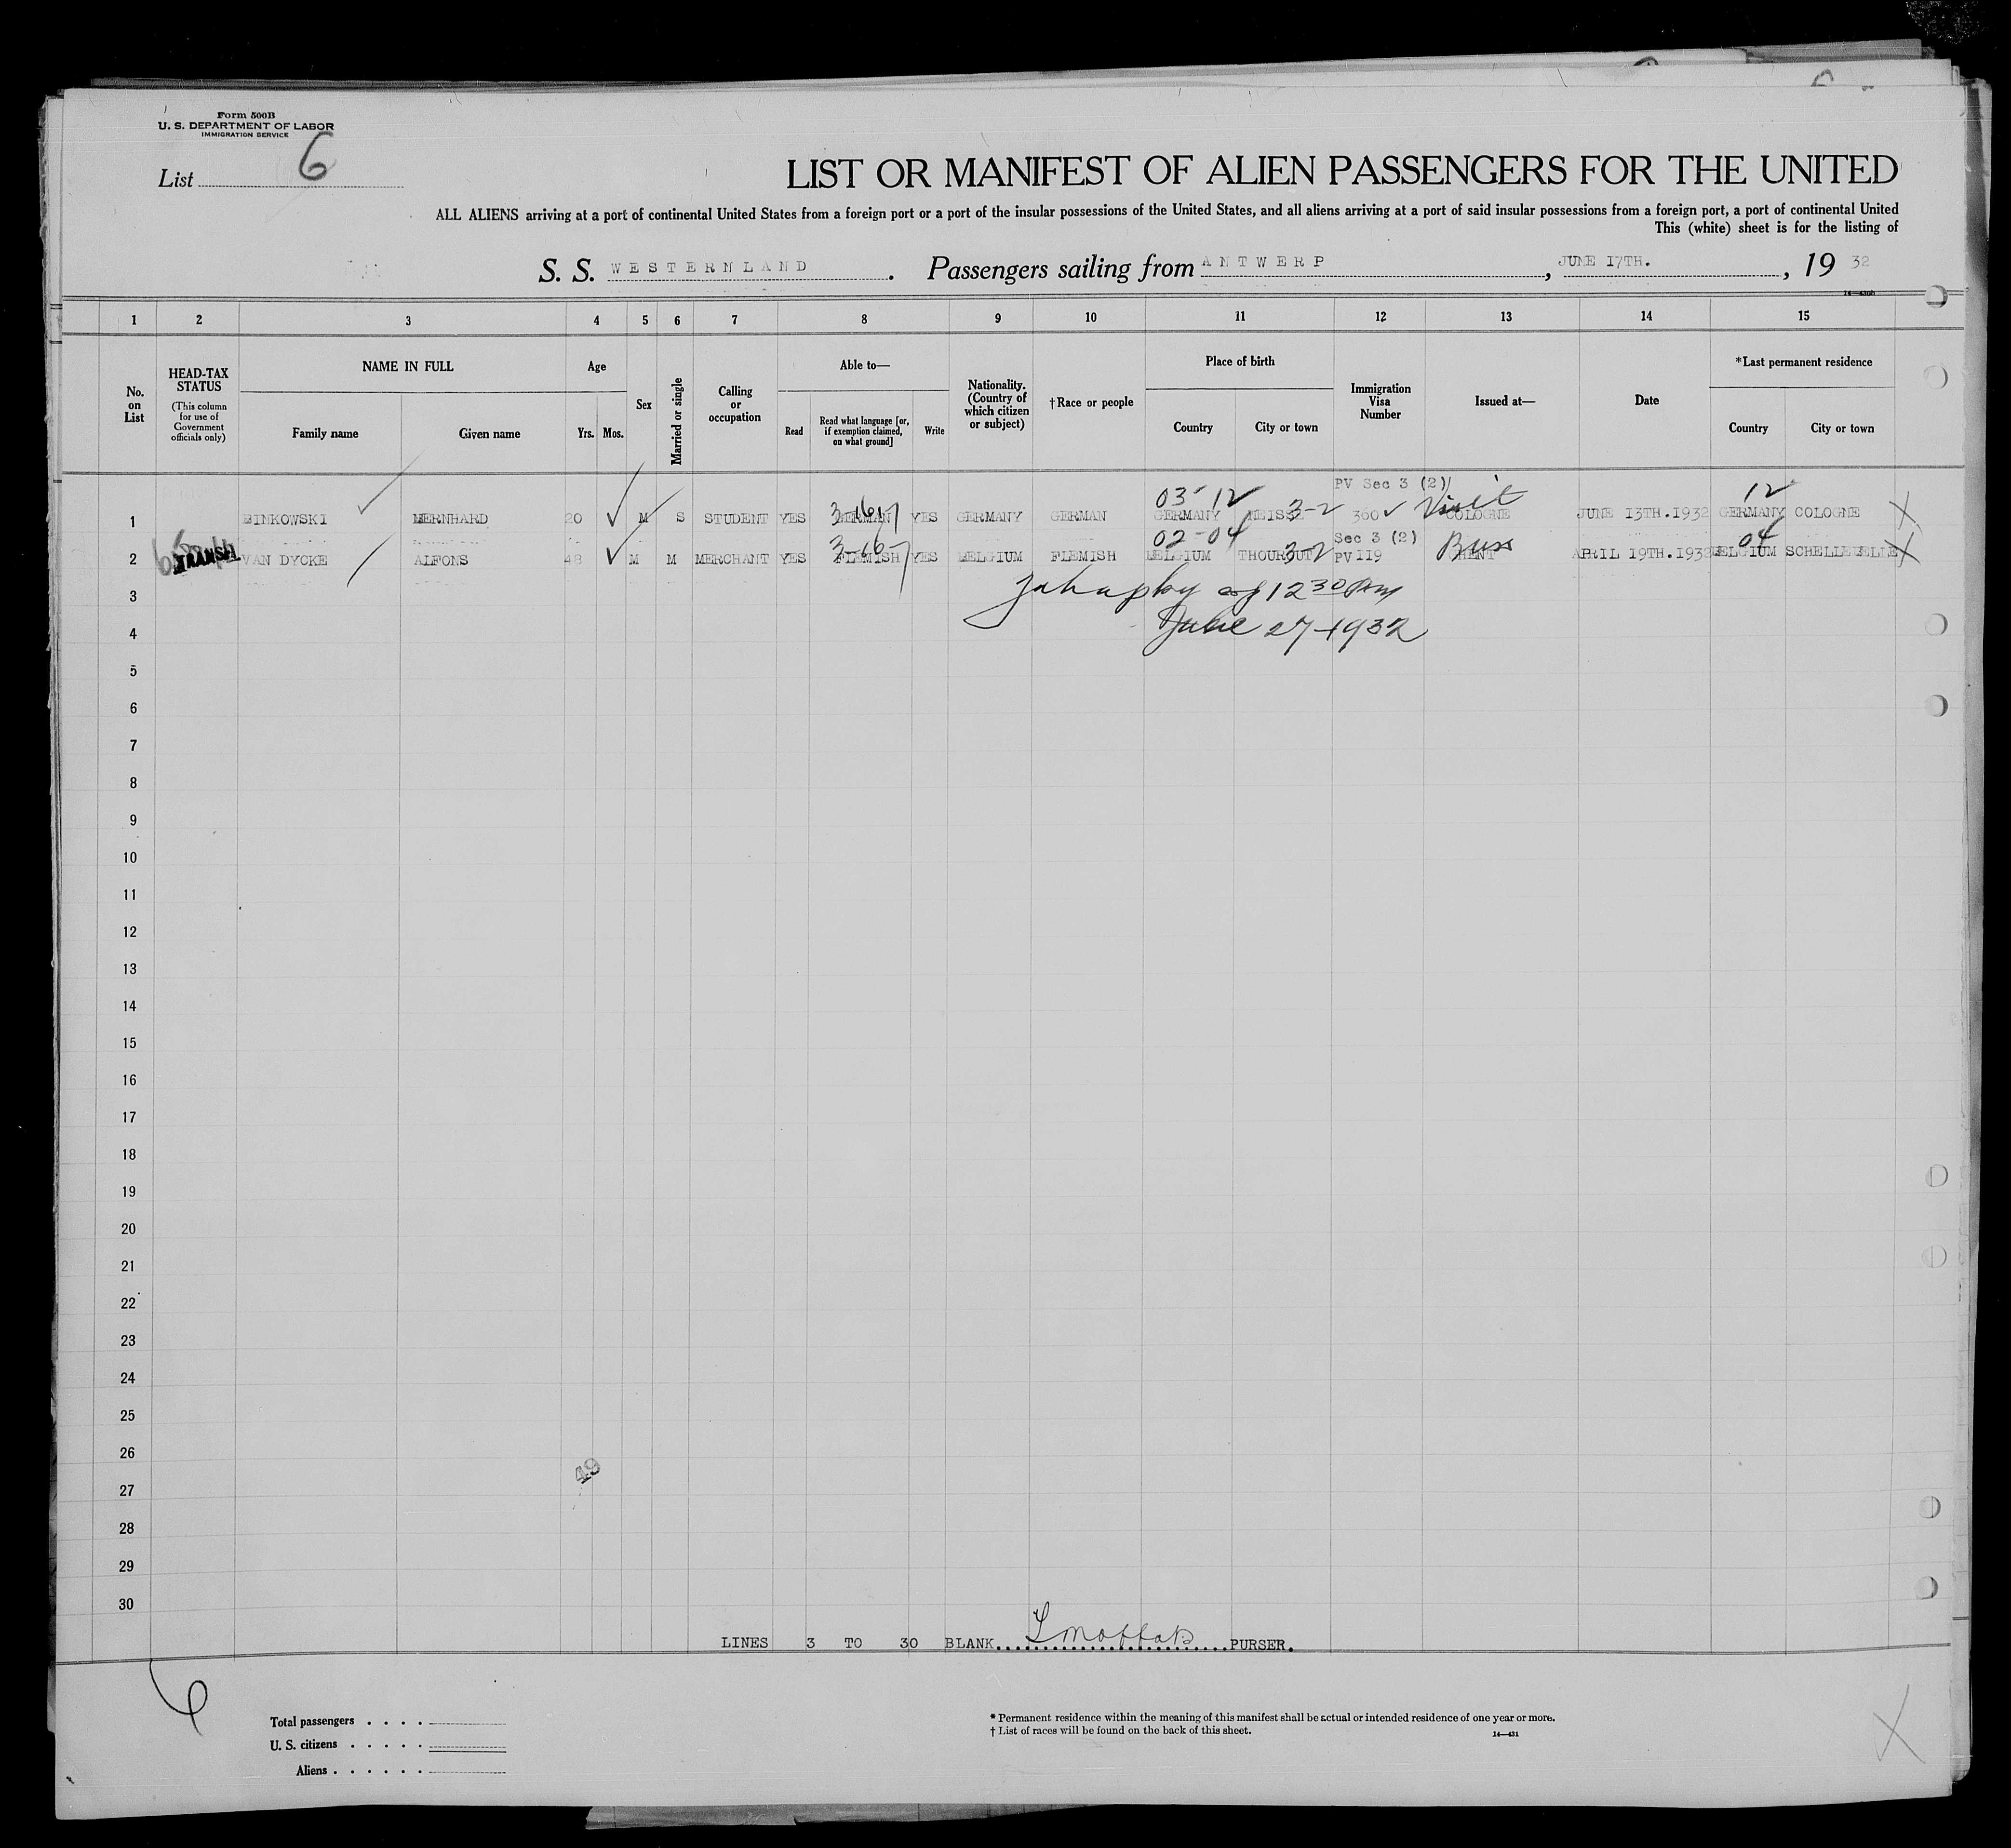 Form 500B
U. S. DEPARTMENT OF LABOR
IMMIGRATION SERVICE
List 6
LIST OR MANIFEST OF ALIEN PASSENGERS FOR THE UNITED
ALL ALIENS arriving at a port of continental United States from a foreign port or a port of the insular possessions of the United States, and all aliens arriving at a port of said insular possessions from a foreign port, a port of continental United
This (white) sheet is for the listing of
S. S. WESTERNLAND. Passengers sailing from ANTWERP, JUNE 17TH., 19 32
1 2 3 4 5 6 7 8 9 10 11 12 13 14 15
No. on List
HEAD-TAX STATUS (This column for use of Government officials only)
NAME IN FULL
Family name
Given name
Age
Yrs. Mos.
Sex
Married or single
Calling or occupation
Able to—
Read
Read what language [or, if exemption claimed, on what ground]
Write
Nationality. (Country of which citizen or subject)
†Race or people
Place of birth
Country
City or town
Immigration Visa Number
Issued at—
Date
*Last permanent residence
Country
City or town
03-12 PV Sec 3 (2) Visit 12
1 BINKOWSKI BERNHARD 20 M S STUDENT YES GERMAN YES GERMANY GERMAN GERMANY 3-2 360 COLOGNE JUNE 13TH.1932 GERMANY COLOGNE
3-16- 02-04 Sec 3 (2) 04
2 TRANSIT VAN DYCKE ALFONS 48 M M MERCHANT YES FLEMISH YES BELGIUM FLEMISH BELGIUM THOUROUT 3-2 PV 119 Buss APRIL 19TH.1932 BELGIUM SCHELLEBELLE
3 12 30 pm
4 June 27-1932
5
6
7
8
9
10
11
12
13
14
15
16
17
18
19
20
21
22
23
24
25
26
49
27
28
29
30
LINES 3 TO 30 BLANK PURSER.
6
Total passengers
U. S. citizens
Aliens
* Permanent residence within the meaning of this manifest shall be actual or intended residence of one year or more.
† List of races will be found on the back of this sheet.
14—431